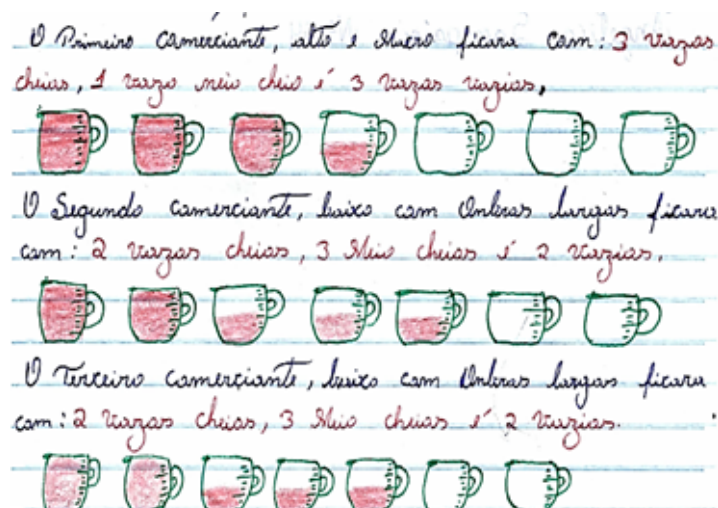 O Primeiro comerciante, alto e Macro ficara com: 3 vazos
cheias, 1 vazo meio cheio é 3 vazas vazias,
O Segundo comerciante, baixo com Onbras largas ficara
com: 2 vazas cheias, 3 Meio cheias é 2 vazias.
O Terceiro comerciante, baixo com Onbras largas ficara
com: 2 vazas cheias, 3 Meio cheias é 2 vazias.